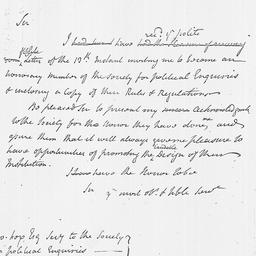 Sir
rec.d y.r polite
I had have had the pleasure of receiving
your Letter of the 13th Instant inviting me to become an
honorary member of the Society for political Enquiries
& inclosing a Copy of their Rules & Regulations
Be pleased Sir to present my sincere acknowledgments
to the Society for this honor they have done me, and
assure them that it will always give me pleasure to
have opportunities of promoting the design of their
Institution.
I have the Honor to be
Sir y.r most ob.t & hble Serv.t
Esq Secy to the Society
political Enquiries